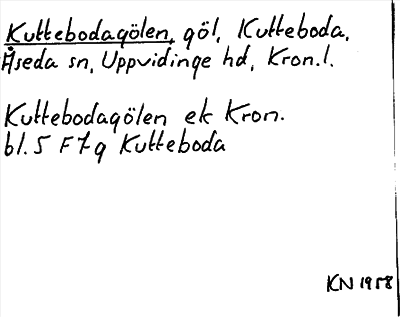 Kuttebodagölen, göl, Kutteboda,
Åseda sn, Uppvidinge hd, Kron.l.
Kuttebodagölen ek Kron.
bl.5 F7g Kutteboda
KN 1958